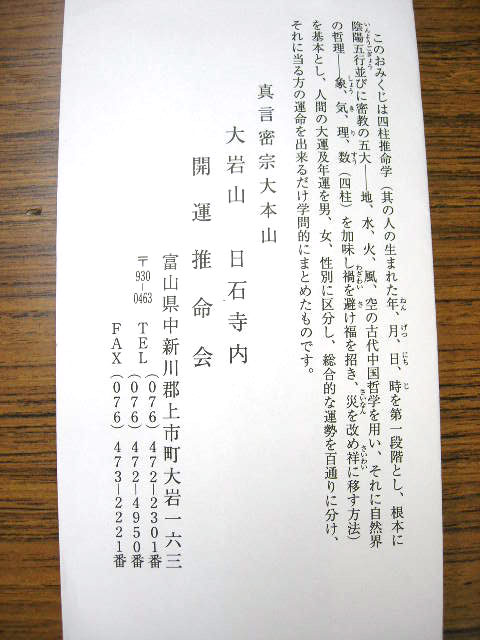 このおみくじは四柱推命学（其の人の生まれた年、月、日、時を第一段階とし、根本に
陰陽五行並びに密教の五大──地、水、火、風、空の古代中国哲学を用い、それに自然界
の哲理──象、気、理、数（四柱）を加味し禍を避け福を招き、災を改め祥に移す方法）
を基本とし、人間の大運及年運を男、女、性別に区分し、総合的な運勢を百通りに分け、
それに当る方の運命を出来るだけ学問的にまとめたものです。
真言密宗大本山
大岩山　日石寺内
開運推命会
富山県中新川郡上市町大岩一六三
〒930-0463　TEL（076）472─2301番
（076）472─4950番
FAX（076）473─2221番